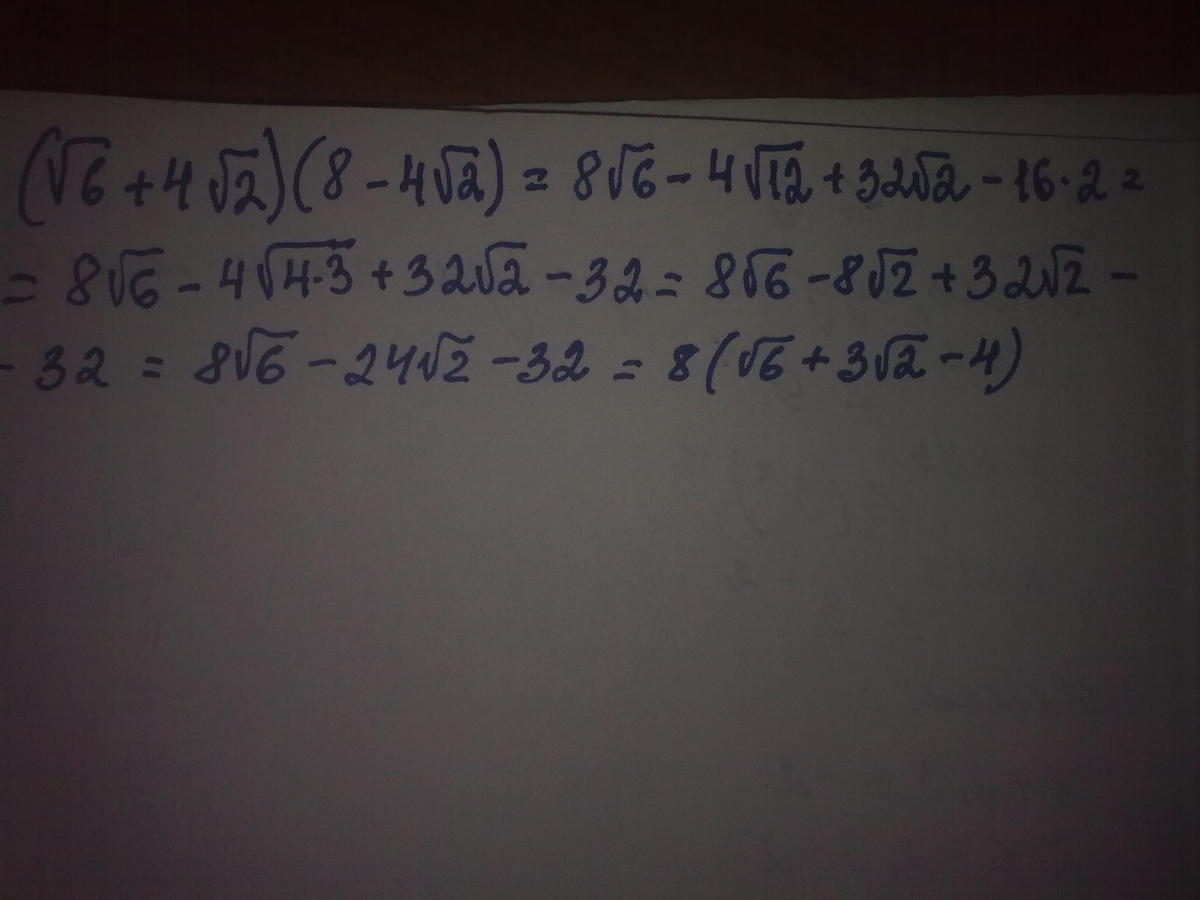 (√6 + 4√2)(8 - 4√2) = 8√6 - 4√12 + 32√2 - 16·2 =
= 8√6 - 4√4·3 + 32√2 - 32 = 8√6 - 8√2 + 32√2 -
- 32 = 8√6 - 24√2 - 32 = 8(√6 + 3√2 - 4)